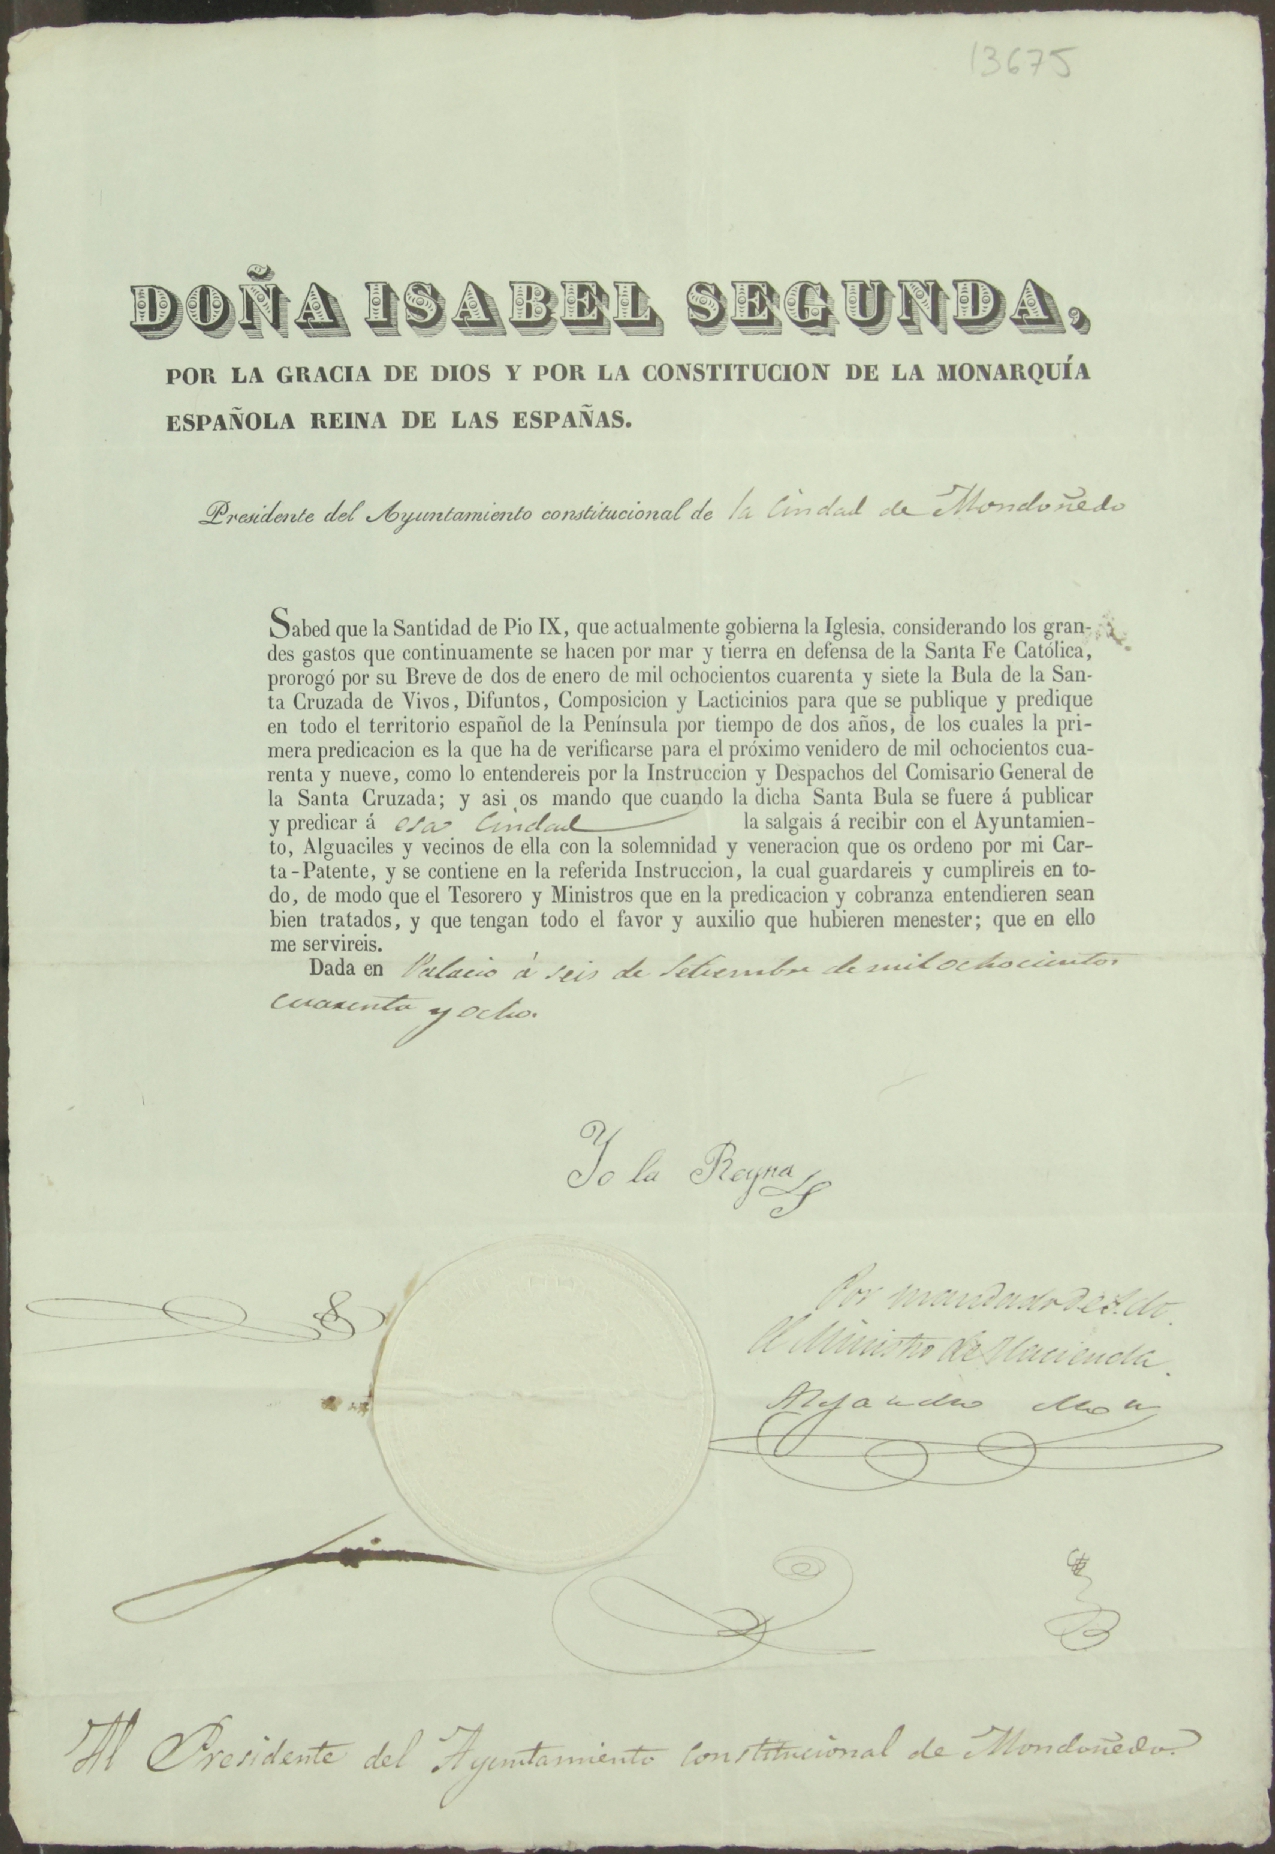 13675
DOÑA ISABEL SEGUNDA,
POR LA GRACIA DE DIOS Y POR LA CONSTITUCION DE LA MONARQUÍA
ESPAÑOLA REINA DE LAS ESPAÑAS.
Presidente del Ayuntamiento constitucional de la Ciudad de Mondoñedo
Sabed que la Santidad de Pio IX, que actualmente gobierna la Iglesia, considerando los gran-
des gastos que continuamente se hacen por mar y tierra en defensa de la Santa Fe Católica,
prorogó por su Breve de dos de enero de mil ochocientos cuarenta y siete la Bula de la San-
ta Cruzada de Vivos, Difuntos, Composicion y Lacticinios para que se publique y predique
en todo el territorio español de la Península por tiempo de dos años, de los cuales la pri-
mera predicacion es la que ha de verificarse para el próximo venidero de mil ochocientos cua-
renta y nueve, como lo entendereis por la Instruccion y Despachos del Comisario General de
la Santa Cruzada; y asi os mando que cuando la dicha Santa Bula se fuere á publicar
y predicar á esa Ciudad la salgais á recibir con el Ayuntamien-
to, Alguaciles y vecinos de ella con la solemnidad y veneracion que os ordeno por mi Car-
ta-Patente, y se contiene en la referida Instruccion, la cual guardareis y cumplireis en to-
do, de modo que el Tesorero y Ministros que en la predicacion y cobranza entendieren sean
bien tratados, y que tengan todo el favor y auxilio que hubieren menester; que en ello
me servireis.
Dada en Palacio á seis de Setiembre de mil ochocientos
cuarenta y ocho.
Yo la Reyna
Por mandado de
El Ministro de Hacienda.
Alejandro Mon
Al Presidente del Ayuntamiento Constitucional de Mondoñedo.